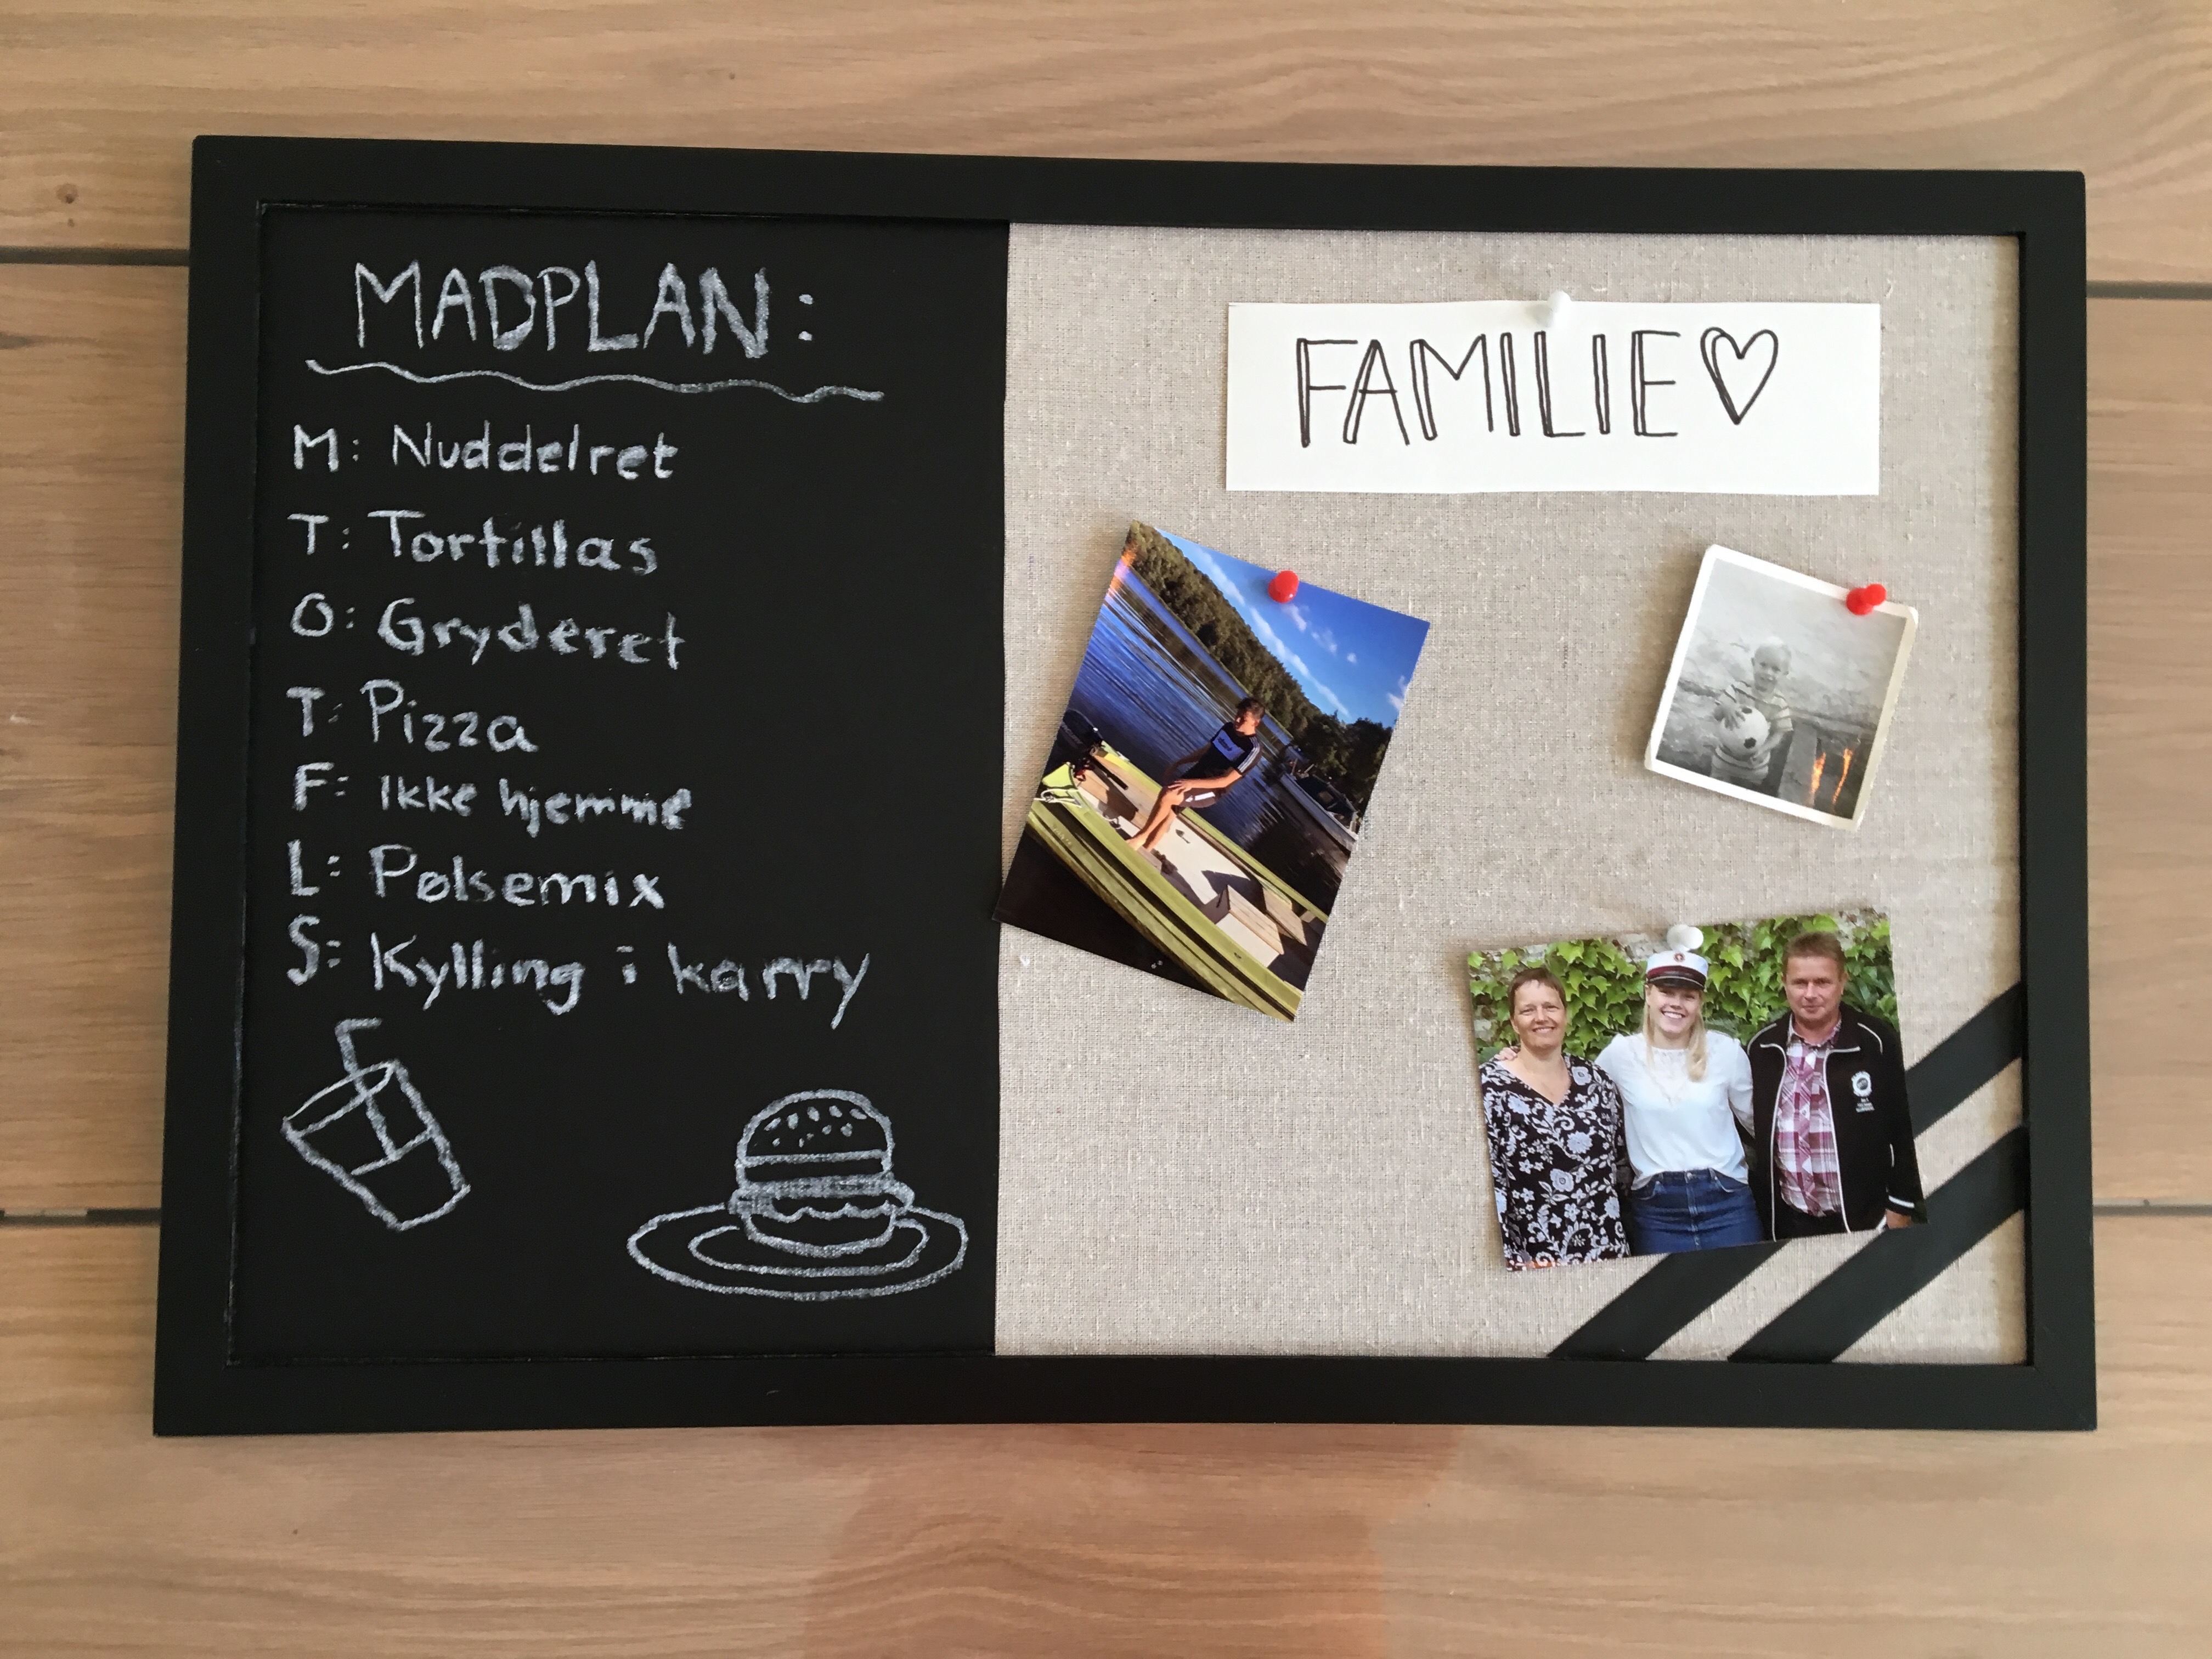 MADPLAN:
M: Nuddelret
T: Tortillas
O: Gryderet
T: Pizza
F: Ikke hjemme
L: Pølsemix
S: Kylling i karry
FAMILIE♡